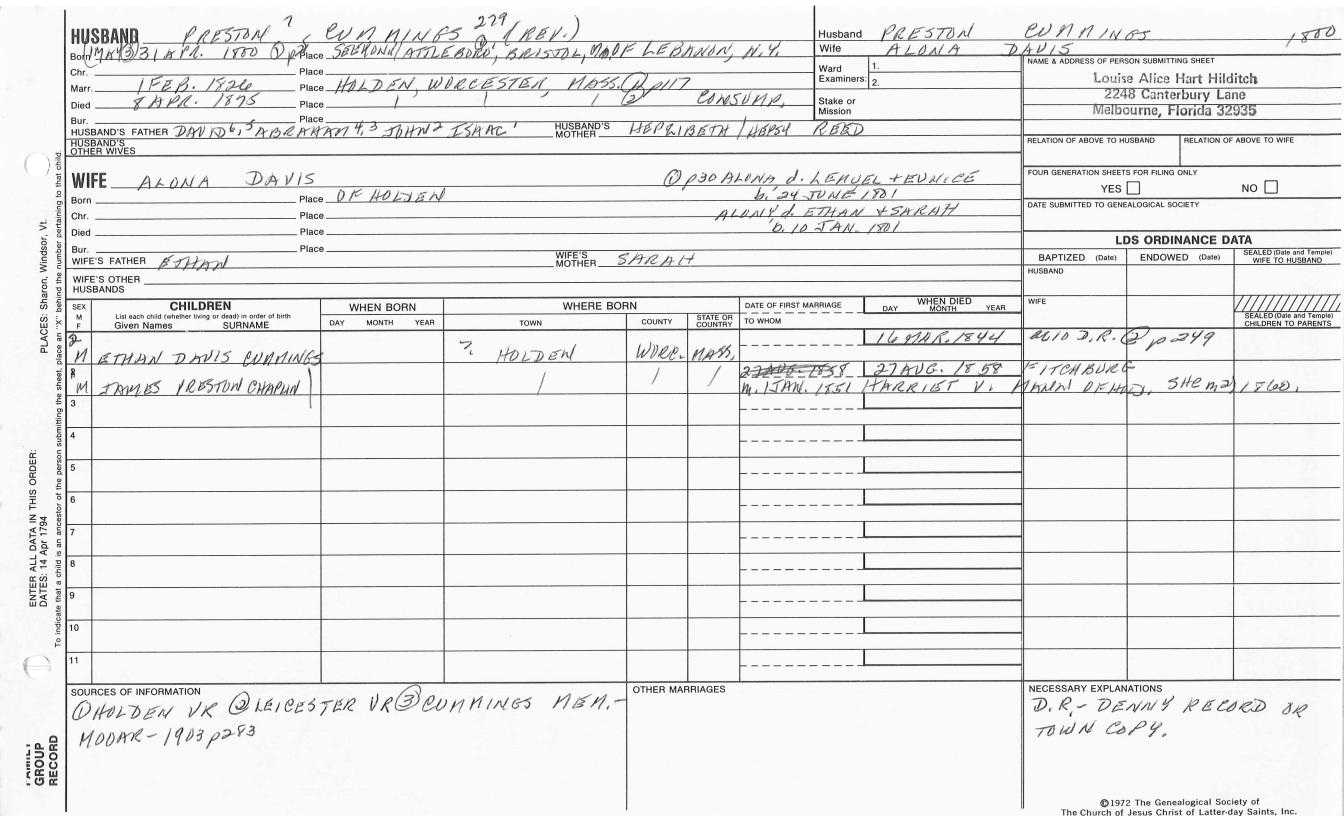 HUSBAND PRESTON 7 CUMMINGS 279 (REV.)
Born 31 APR. 1800 ① Place SEEKONK/ATTLEBORO, BRISTOL, OF LEBANON, N.Y.
Chr. Place
Marr. 1 FEB. 1826 Place HOLDEN, WORCESTER, MASS. ② p117
Died 8 APR. 1875 Place / / / ② CONSUMP.
Bur. Place
HUSBAND'S FATHER DAVID 6, 5 ABRAHAM 4, 3 JOHN 2 ISAAC 1 HUSBAND'S MOTHER HEPZIBETH / HEPSY REED
HUSBAND'S OTHER WIVES
Husband PRESTON CUMMINGS 1800
Wife ALONA DAVIS
Ward 1.
Examiners: 2.
Stake or
Mission
NAME & ADDRESS OF PERSON SUBMITTING SHEET
Louise Alice Hart Hilditch
2248 Canterbury Lane
Melbourne, Florida 32935
RELATION OF ABOVE TO HUSBAND RELATION OF ABOVE TO WIFE
FOUR GENERATION SHEETS FOR FILING ONLY
YES NO
DATE SUBMITTED TO GENEALOGICAL SOCIETY
WIFE ALONA DAVIS ① p30 ALONA d. LEMUEL + EUNICE
Born Place OF HOLDEN b. 24 JUNE 1801
Chr. Place ALONY d. ETHAN + SARAH
Died Place b. 10 JAN. 1801
Bur. Place
WIFE'S FATHER ETHAN WIFE'S MOTHER SARAH
WIFE'S OTHER HUSBANDS
LDS ORDINANCE DATA
BAPTIZED (Date) ENDOWED (Date) SEALED (Date and Temple) WIFE TO HUSBAND
HUSBAND
WIFE
SEALED (Date and Temple) CHILDREN TO PARENTS
SEX M F CHILDREN WHEN BORN WHERE BORN DATE OF FIRST MARRIAGE WHEN DIED
List each child (whether living or dead) in order of birth
Given Names SURNAME DAY MONTH YEAR TOWN COUNTY STATE OR COUNTRY TO WHOM DAY MONTH YEAR
2 16 MAR. 1844 D.R. ② p249
M ETHAN DAVIS CUMMINGS ?. HOLDEN WORC. MASS.
1 27 AUG. 1858 27 AUG. 1858 FITCHBURG
M JAMES PRESTON CHAPLIN / / / m. 1 JAN. 1851 HARRIET V. SHE m 2) 1860.
3
4
5
6
7
8
9
10
11
SOURCES OF INFORMATION
① HOLDEN VR ② LEICESTER VR ③ CUMMINGS MEM.-
MODAR-1903 p283
OTHER MARRIAGES
NECESSARY EXPLANATIONS
D.R.- DENNY RECORD OR
TOWN COPY.
©1972 The Genealogical Society of
The Church of Jesus Christ of Latter-day Saints, Inc.
ENTER ALL DATA IN THIS ORDER:
DATES: 14 Apr 1794 PLACES: Sharon, Windsor, Vt.
To indicate that a child is an ancestor of the person submitting the sheet, place an "X" behind the number pertaining to that child.
FAMILY
GROUP
RECORD